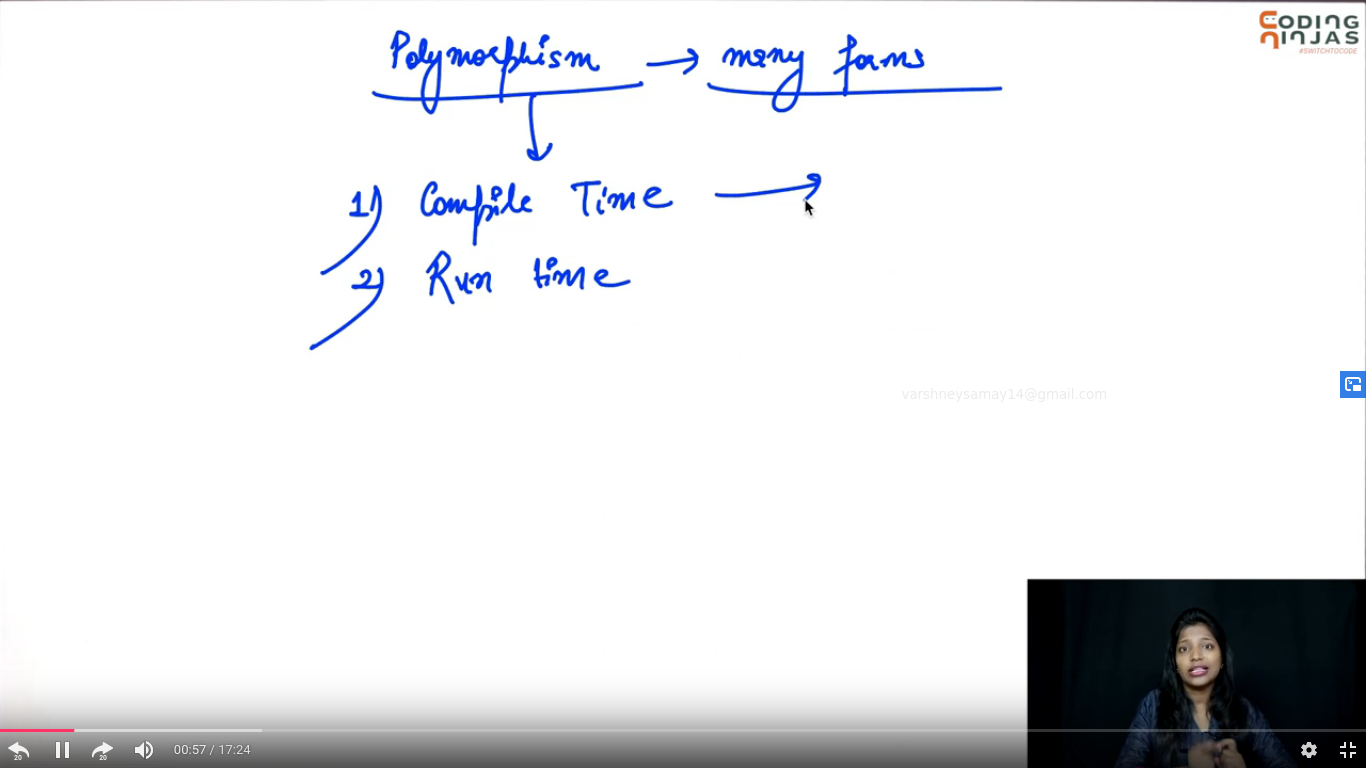 CODING
NINJAS
#SWITCHTOCODE
Polymorphism → many forms
1) Compile Time →
2) Run time
varshneysamay14@gmail.com
20
20
00:57 / 17:24